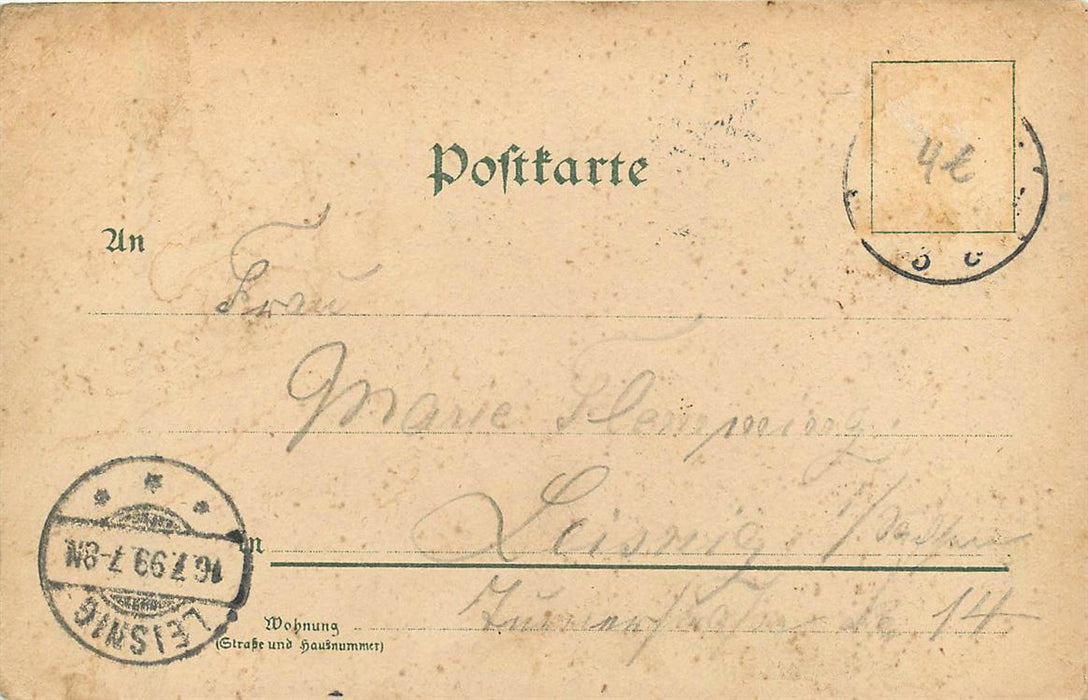 Postkarte
4
An
Frau
Marie Flemming
Leisnig i/Sachsen
in
16.7.99.7-8N.
LEISNIG
14
Wohnung
(Straße und Hausnummer)